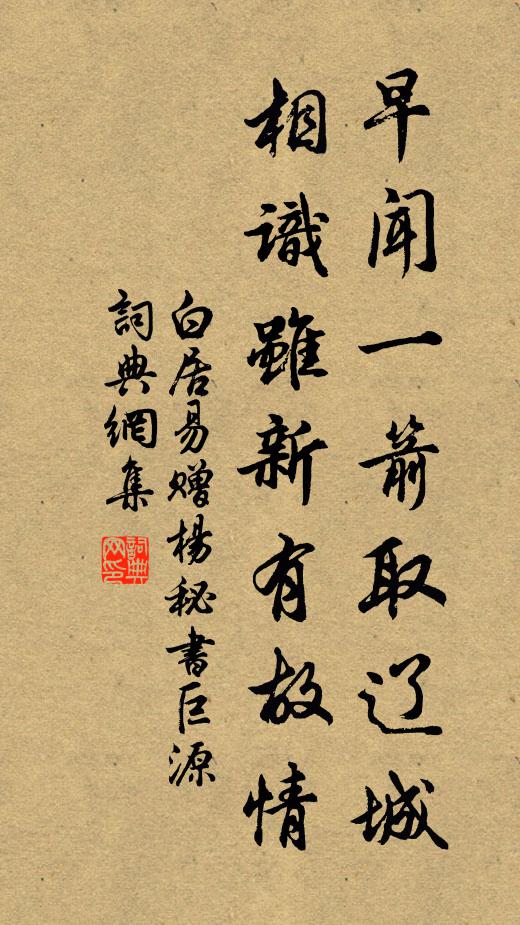 早聞一箭取辽城
相識雖新有故情
白居易赠楊秘書巨源
詞典網集
詞典
网印